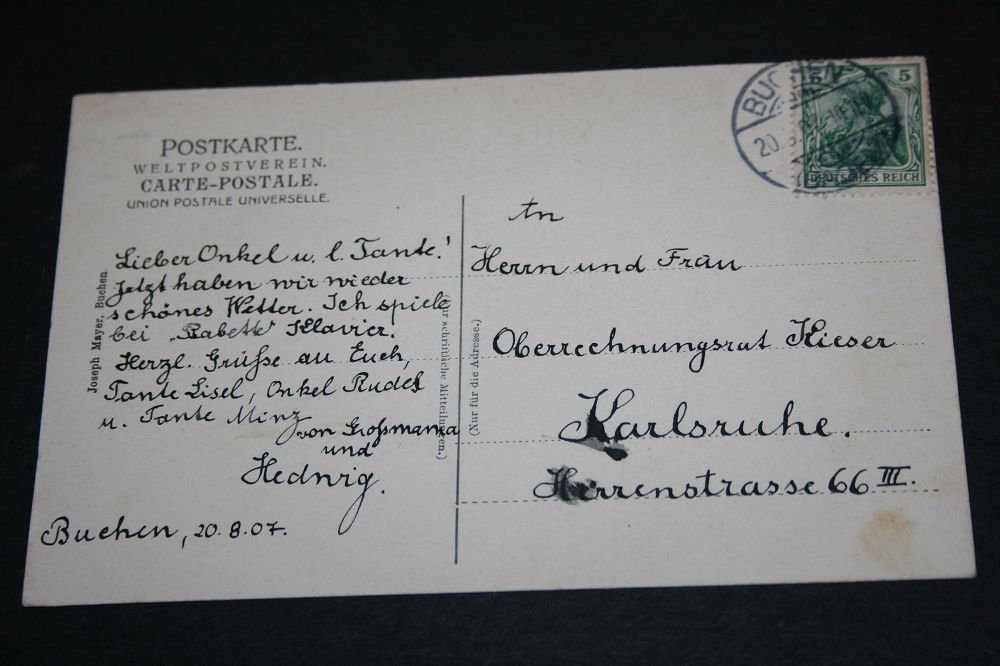 POSTKARTE.
WELTPOSTVEREIN.
CARTE-POSTALE.
UNION POSTALE UNIVERSELLE.
Joseph Mayer, Buchen.
Lieber Onkel u. l. Tante!
Jetzt haben wir wieder
schönes Wetter. Ich spiele
bei „Babette“ Klavier.
Herzl. Grüße an Euch,
Tante Lisel, Onkel Rudel
u. Tante Minz
von Großmama
und
Hedwig.
Buchen, 20.8.07.
(Für schriftliche Mitteilungen.)
(Nur für die Adresse.)
BUCHEN
20.
5 5
DEUTSCHES REICH
An
Herrn und Frau
Oberrechnungsrat Kieser
Karlsruhe.
Herrenstrasse 66 III.